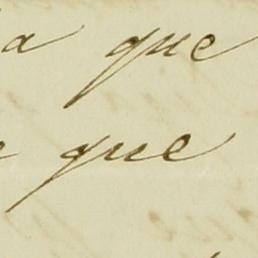 a que
que